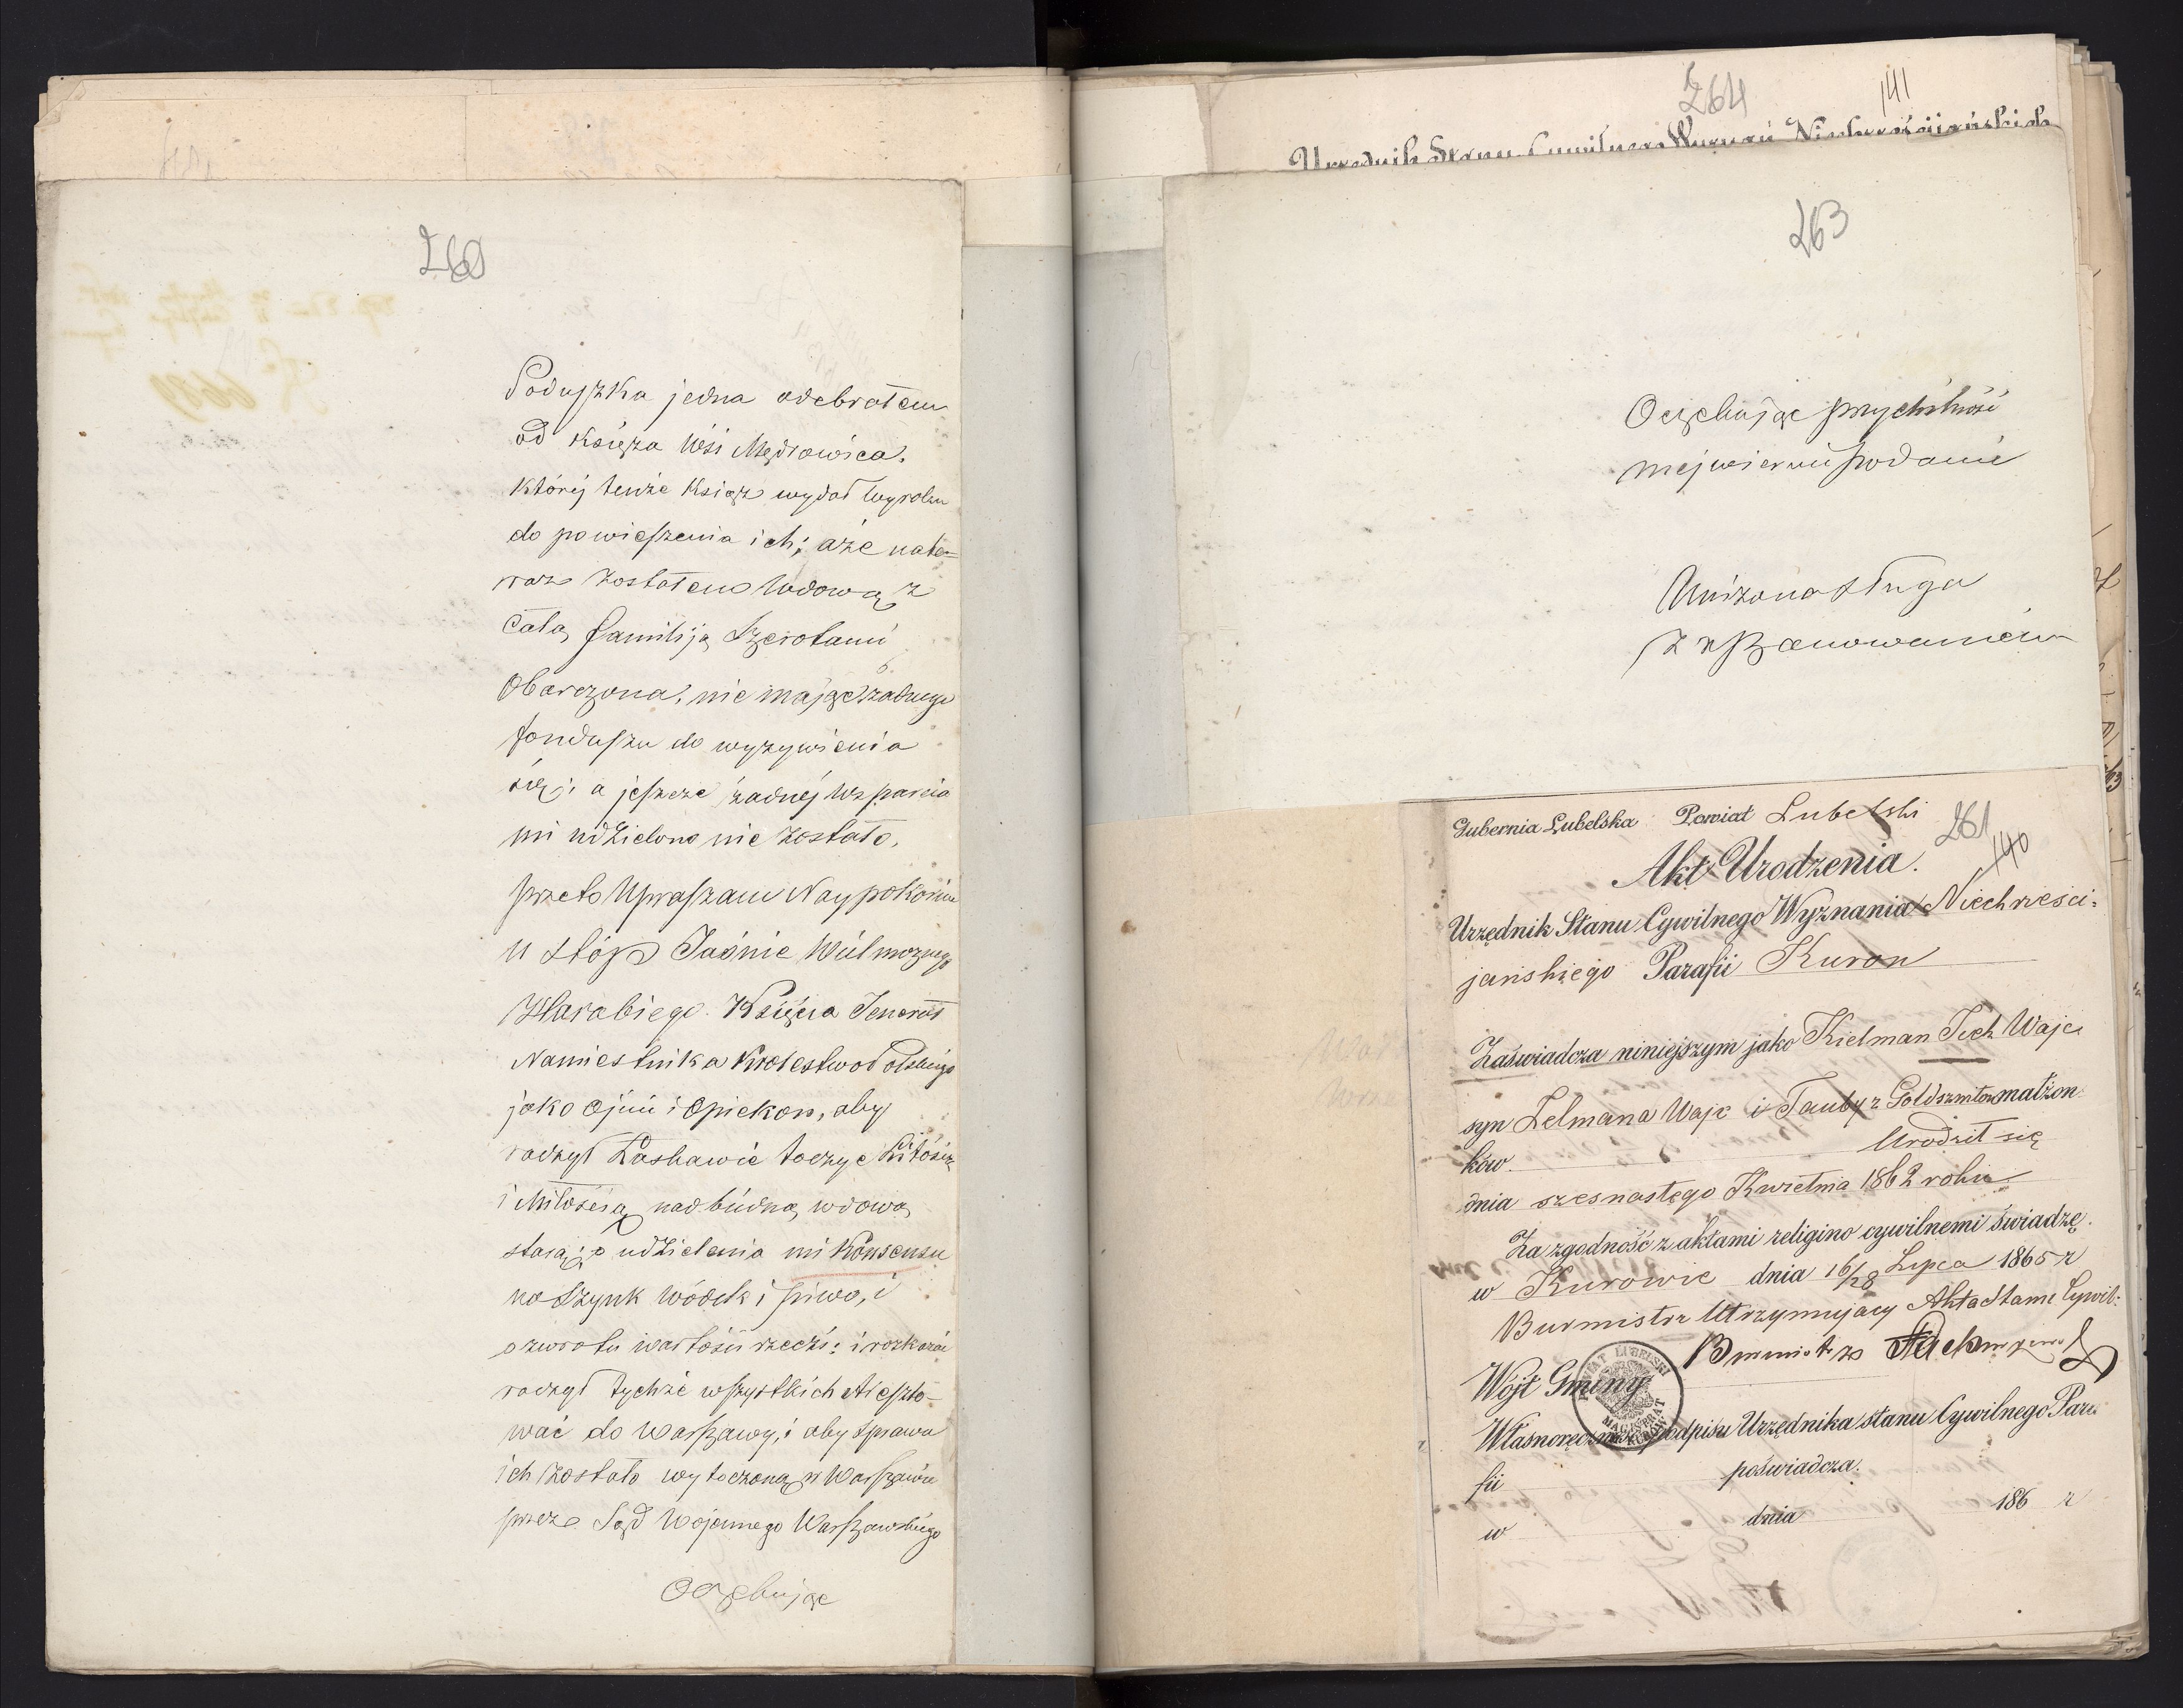 260
Poduszka jedna odebrałem
od Księza Wsi Mędrowica.
którėj tenże Ksiąze wydał wyroku
do powieszenia ich; aże nate-
raz zostałem Wdową z
całą familiją Szerotami
Obarczona, nie mając żadnego
fonduszu do wyzywienia
się; a jeszcze żadnėj wsparcia
mi udzielono nie zostało,
przeto Upraszam Naypokorniu
u Stóp Jaśnie Wielmoznego
Harabiego Księcia Jenerał
Namiestnika Krolestwo Polskiego
jako Ojcu i Opiekon, aby
radzył Łaskawie toczyc Litością
i Miłością nad biédną wdową
starąį o udzielenia mi Konsensu
na Szynk wódek i piwo, i
ozwrotu wartości rzeczi; i rozkazać
radzył tychże wszystkich Areszto-
wać do Warszawy, i aby Sprawa
ich zostało wytoczoną w Warszawie
przez Sąd Wojennego Warszawskiego
Oczekując
264 141
Urzędnik Stanu Cywilnego Wyznań Niechrześcijańskich
263
Oczekując przychilność
mėj wiernie podanie
Unizona Sługa
z uszanowaniem
Gubernia Lubelska Powiat Lubelski
261
140
Akt Urodzenia.
Urzędnik Stanu Cywilnego Wyznania Niechrześci-
jańskiego Parafii Kurow
Zaświadcza niniejszym jako Kielman Icek Wajc
syn Zelmana Wajc i Tauby z Goldszmitow małżon
ków Urodził się
dnia szesnastego Kwietnia 1862 roku
Za zgodność z aktami religino cywilnemi świadzę.
w Kurowie dnia 16/28 Lipca 1865 r
Burmistrz Utrzymujący Akta Stanu Cywil:
Burmistrz
Wójt Gminy
POWIAT LUBELSKI MAGISTRAT KURÓW
Własnoręczność podpisu Urzędnika stanu Cywilnego Para
fii poświadcza.
w dnia 186 r